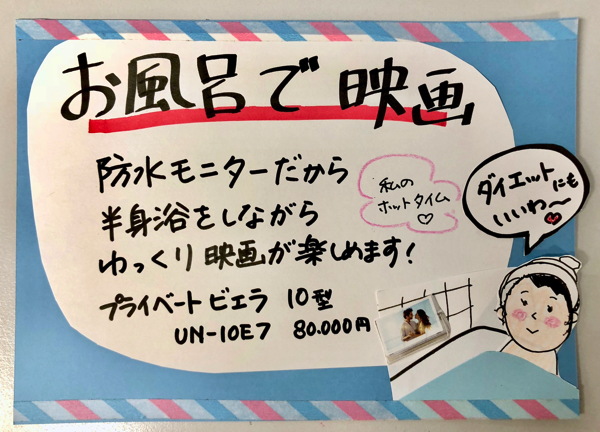 お風呂で映画
防水モニターだから
半身浴をしながら
ゆっくり映画が楽しめます!
プライベートビエラ 10型
UN-10E7 80.000円
私の
ホットタイム♡
ダイエットにも
いいわ〜